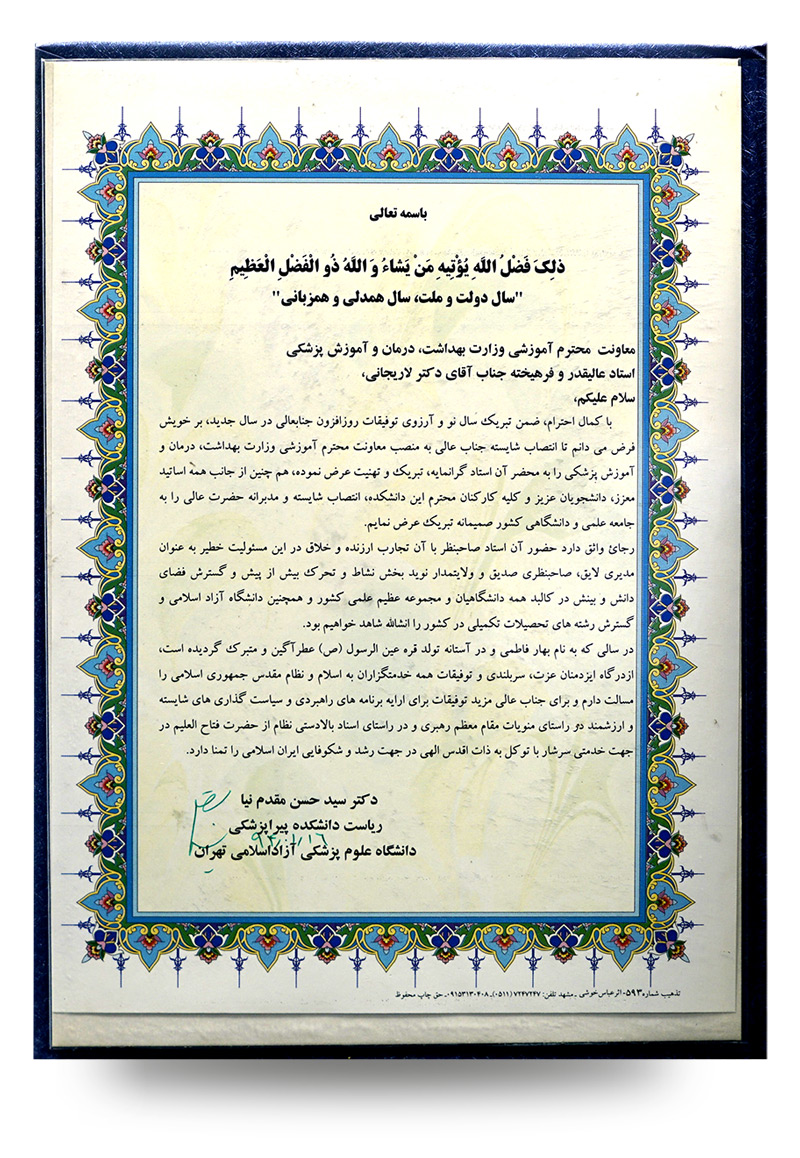 باسمه تعالی
ذلِکَ فَضْلُ اللَّهِ یُؤْتِیهِ مَنْ یَشاءُ وَ اللَّهُ ذُو الْفَضْلِ الْعَظِیمِ
"سال دولت و ملت، سال همدلی و همزبانی"
معاونت محترم آموزشی وزارت بهداشت، درمان و آموزش پزشکی
استاد عالیقدر و فرهیخته جناب آقای دکتر لاریجانی،
سلام علیکم،
با کمال احترام، ضمن تبریک سال نو و آرزوی توفیقات روزافزون جنابعالی در سال جدید، بر خویش
فرض می دانم تا انتصاب شایسته جناب عالی به منصب معاونت محترم آموزشی وزارت بهداشت، درمان و
آموزش پزشکی را به محضر آن استاد گرانمایه، تبریک و تهنیت عرض نموده، هم چنین از جانب همه اساتید
معزز، دانشجویان عزیز و کلیه کارکنان محترم این دانشکده، انتصاب شایسته و مدبرانه حضرت عالی را به
جامعه علمی و دانشگاهی کشور صمیمانه تبریک عرض نمایم.
رجائ واثق دارد حضور آن استاد صاحبنظر با آن تجارب ارزنده و خلاق در این مسئولیت خطیر به عنوان
مدیری لایق، صاحبنظری صدیق و ولایتمدار نوید بخش نشاط و تحرک بیش از پیش و گسترش فضای
دانش و بینش در کالبد همه دانشگاهیان و مجموعه عظیم علمی کشور و همچنین دانشگاه آزاد اسلامی و
گسترش رشته های تحصیلات تکمیلی در کشور را انشالله شاهد خواهیم بود.
در سالی که به نام بهار فاطمی و در آستانه تولد قره عین الرسول (ص) عطرآگین و متبرک گردیده است،
ازدرگاه ایزدمنان عزت، سربلندی و توفیقات همه خدمتگزاران به اسلام و نظام مقدس جمهوری اسلامی را
مسالت دارم و برای جناب عالی مزید توفیقات برای ارایه برنامه های راهبردی و سیاست گذاری های شایسته
و ارزشمند در راستای منویات مقام معظم رهبری و در راستای اسناد بالادستی نظام از حضرت فتاح العلیم در
جهت خدمتی سرشار با توکل به ذات اقدس الهی در جهت رشد و شکوفایی ایران اسلامی را تمنا دارد.
دکتر سید حسن مقدم نیا
ریاست دانشکده پیراپزشکی
دانشگاه علوم پزشکی آزاداسلامی تهران
تذهیب شماره ۵۹۳-اثرعباس خوشی - مشهد تلفن: ۷۲۴۷۲۴۷ (۰۵۱۱)-۰۹۱۵۳۱۳۰۴۰۸- حق چاپ محفوظ